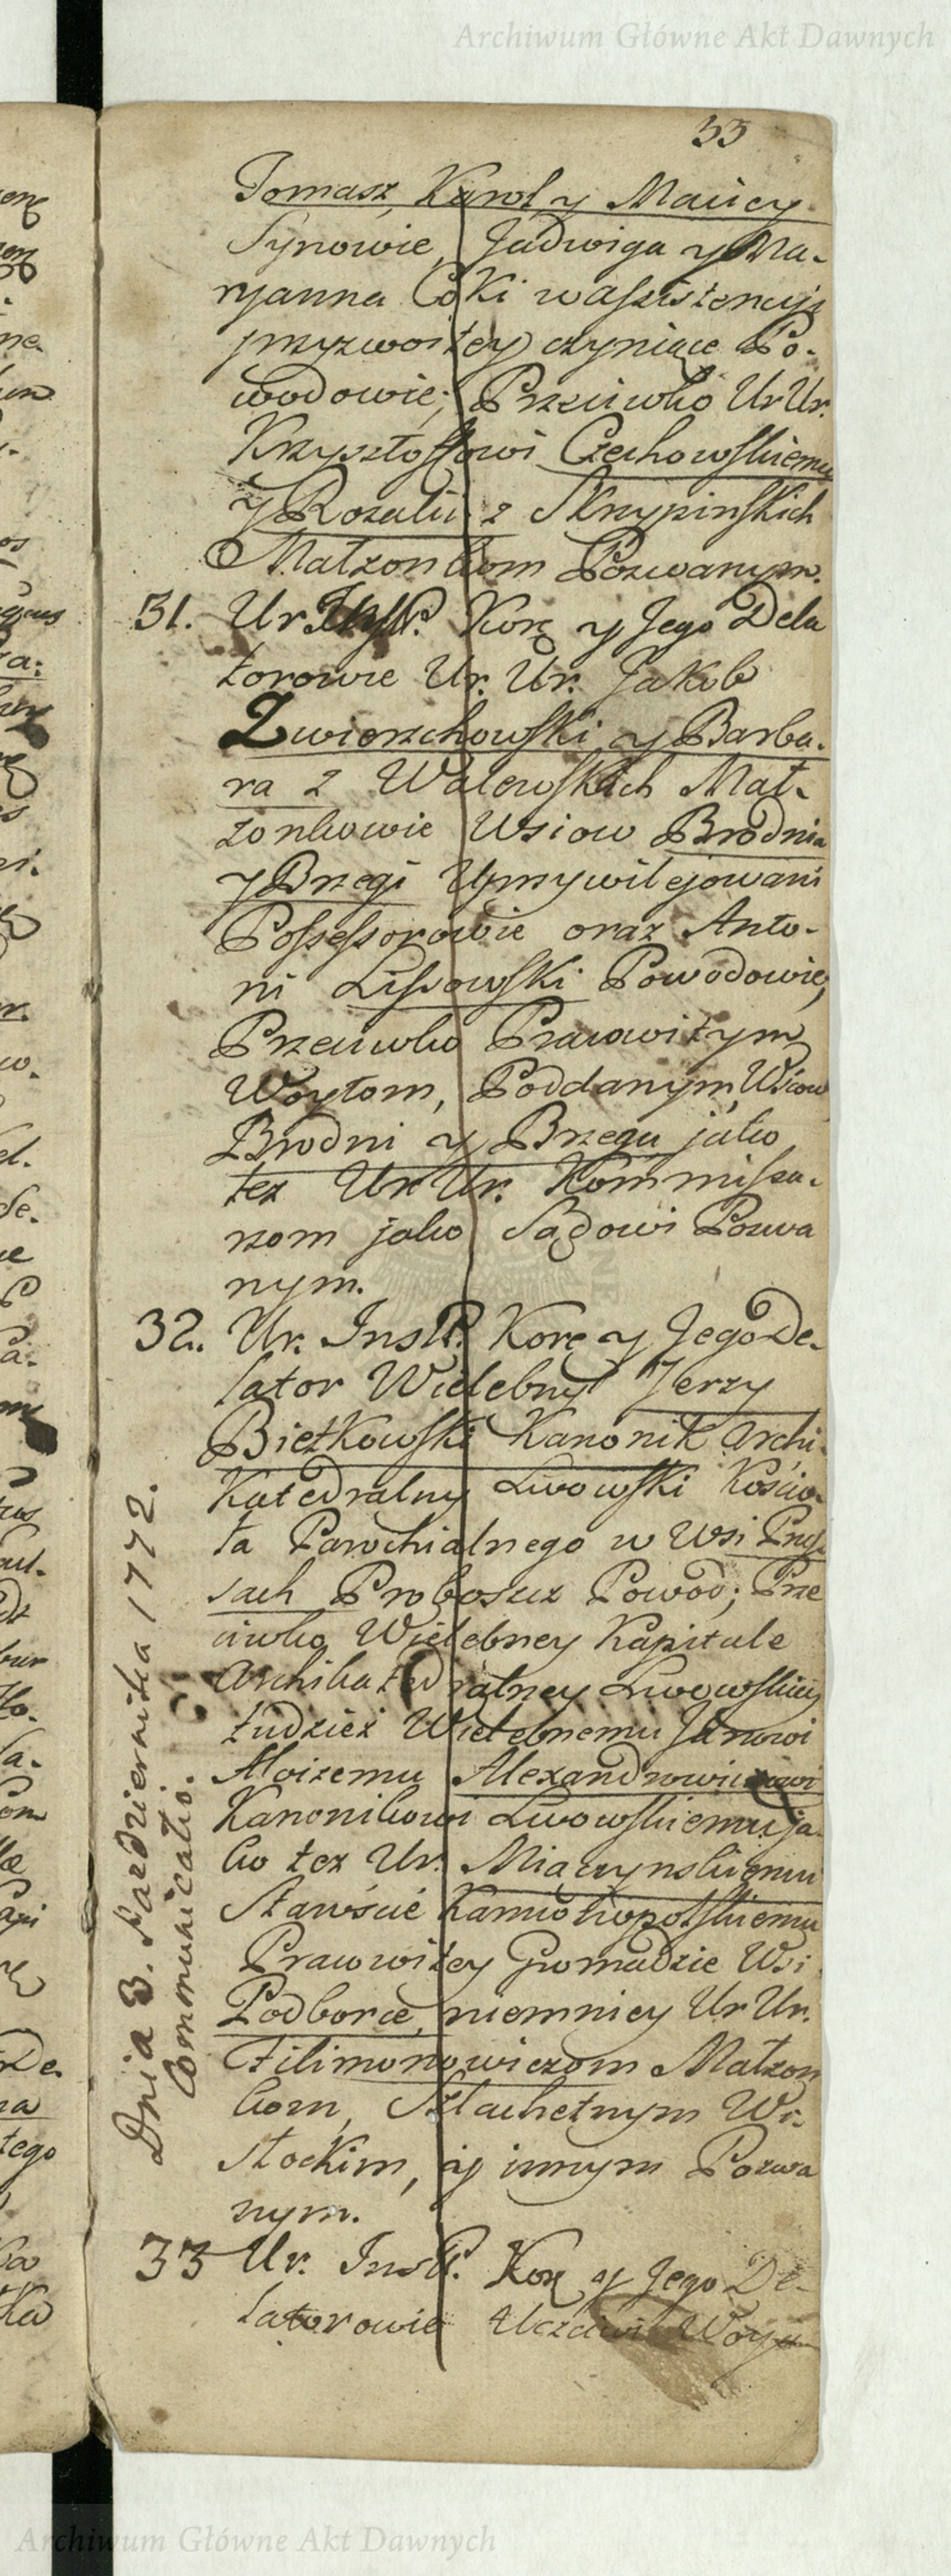 Archiwum Główne Akt Dawnych
33
Tomasz, Karol y Maucy
Synowie, Jadwiga y Ma-
ryanna Coki w assistencyi
przyzwoitey czyniące Po-
wodowie; Przeciwko Ur Ur.
Krzysztoffowi Czechowskiemu
y Rozalii z Skrzypinskich
Małzonkom Pozwanym.
31. Ur Inst. Korę y Jego Dela
torowie Ur. Ur. Jakub
Zwierzchowski y Barba-
ra z Walewskich Mał-
zonkowie Wsiow Brodnia
y Brzegi Uprzywilejowani
Possessorowie oraz Anto-
ni Lissowski Powodowie,
Przeciwko Pracowitym
Woytom, Poddanym Wsiow
Brodni y Brzegu jako
tez Ur Ur. Kommissa-
rzom jako Sądowi Pozwa
nym.
32. Ur. Inst. Korę y Jego De-
lator Wielebny Jerzy
Bietkowski Kanonik Archi-
Katedralny Lwowski Kościo-
ła Parochialnego w Wsi Prus-
sach Proboszcz Powod; Prze
ciwko Wielebney Kapitule
Archikatedralney Lwowskiey
tudziesz Wielebnemu Janowi
Aloizemu Alexandrowiczowi
Kanonikowi Lwowskiemu ja-
ko tez Ur. Miączynskiemu
Starościе Kamiokopolskiemu
Pracowitey Gromadzie Wsi
Podborce, niemniey Ur Ur.
Filimonowiczom Małzon
kom, Szlachetnym Wi-
stockim, y innym Pozwa
nym.
33 Ur. Inst. Korę y Jego De-
latorowie Uczciwi Woy
Dnia 3. Pazdziernika 1772.
Communicatio.
Archiwum Główne Akt Dawnych